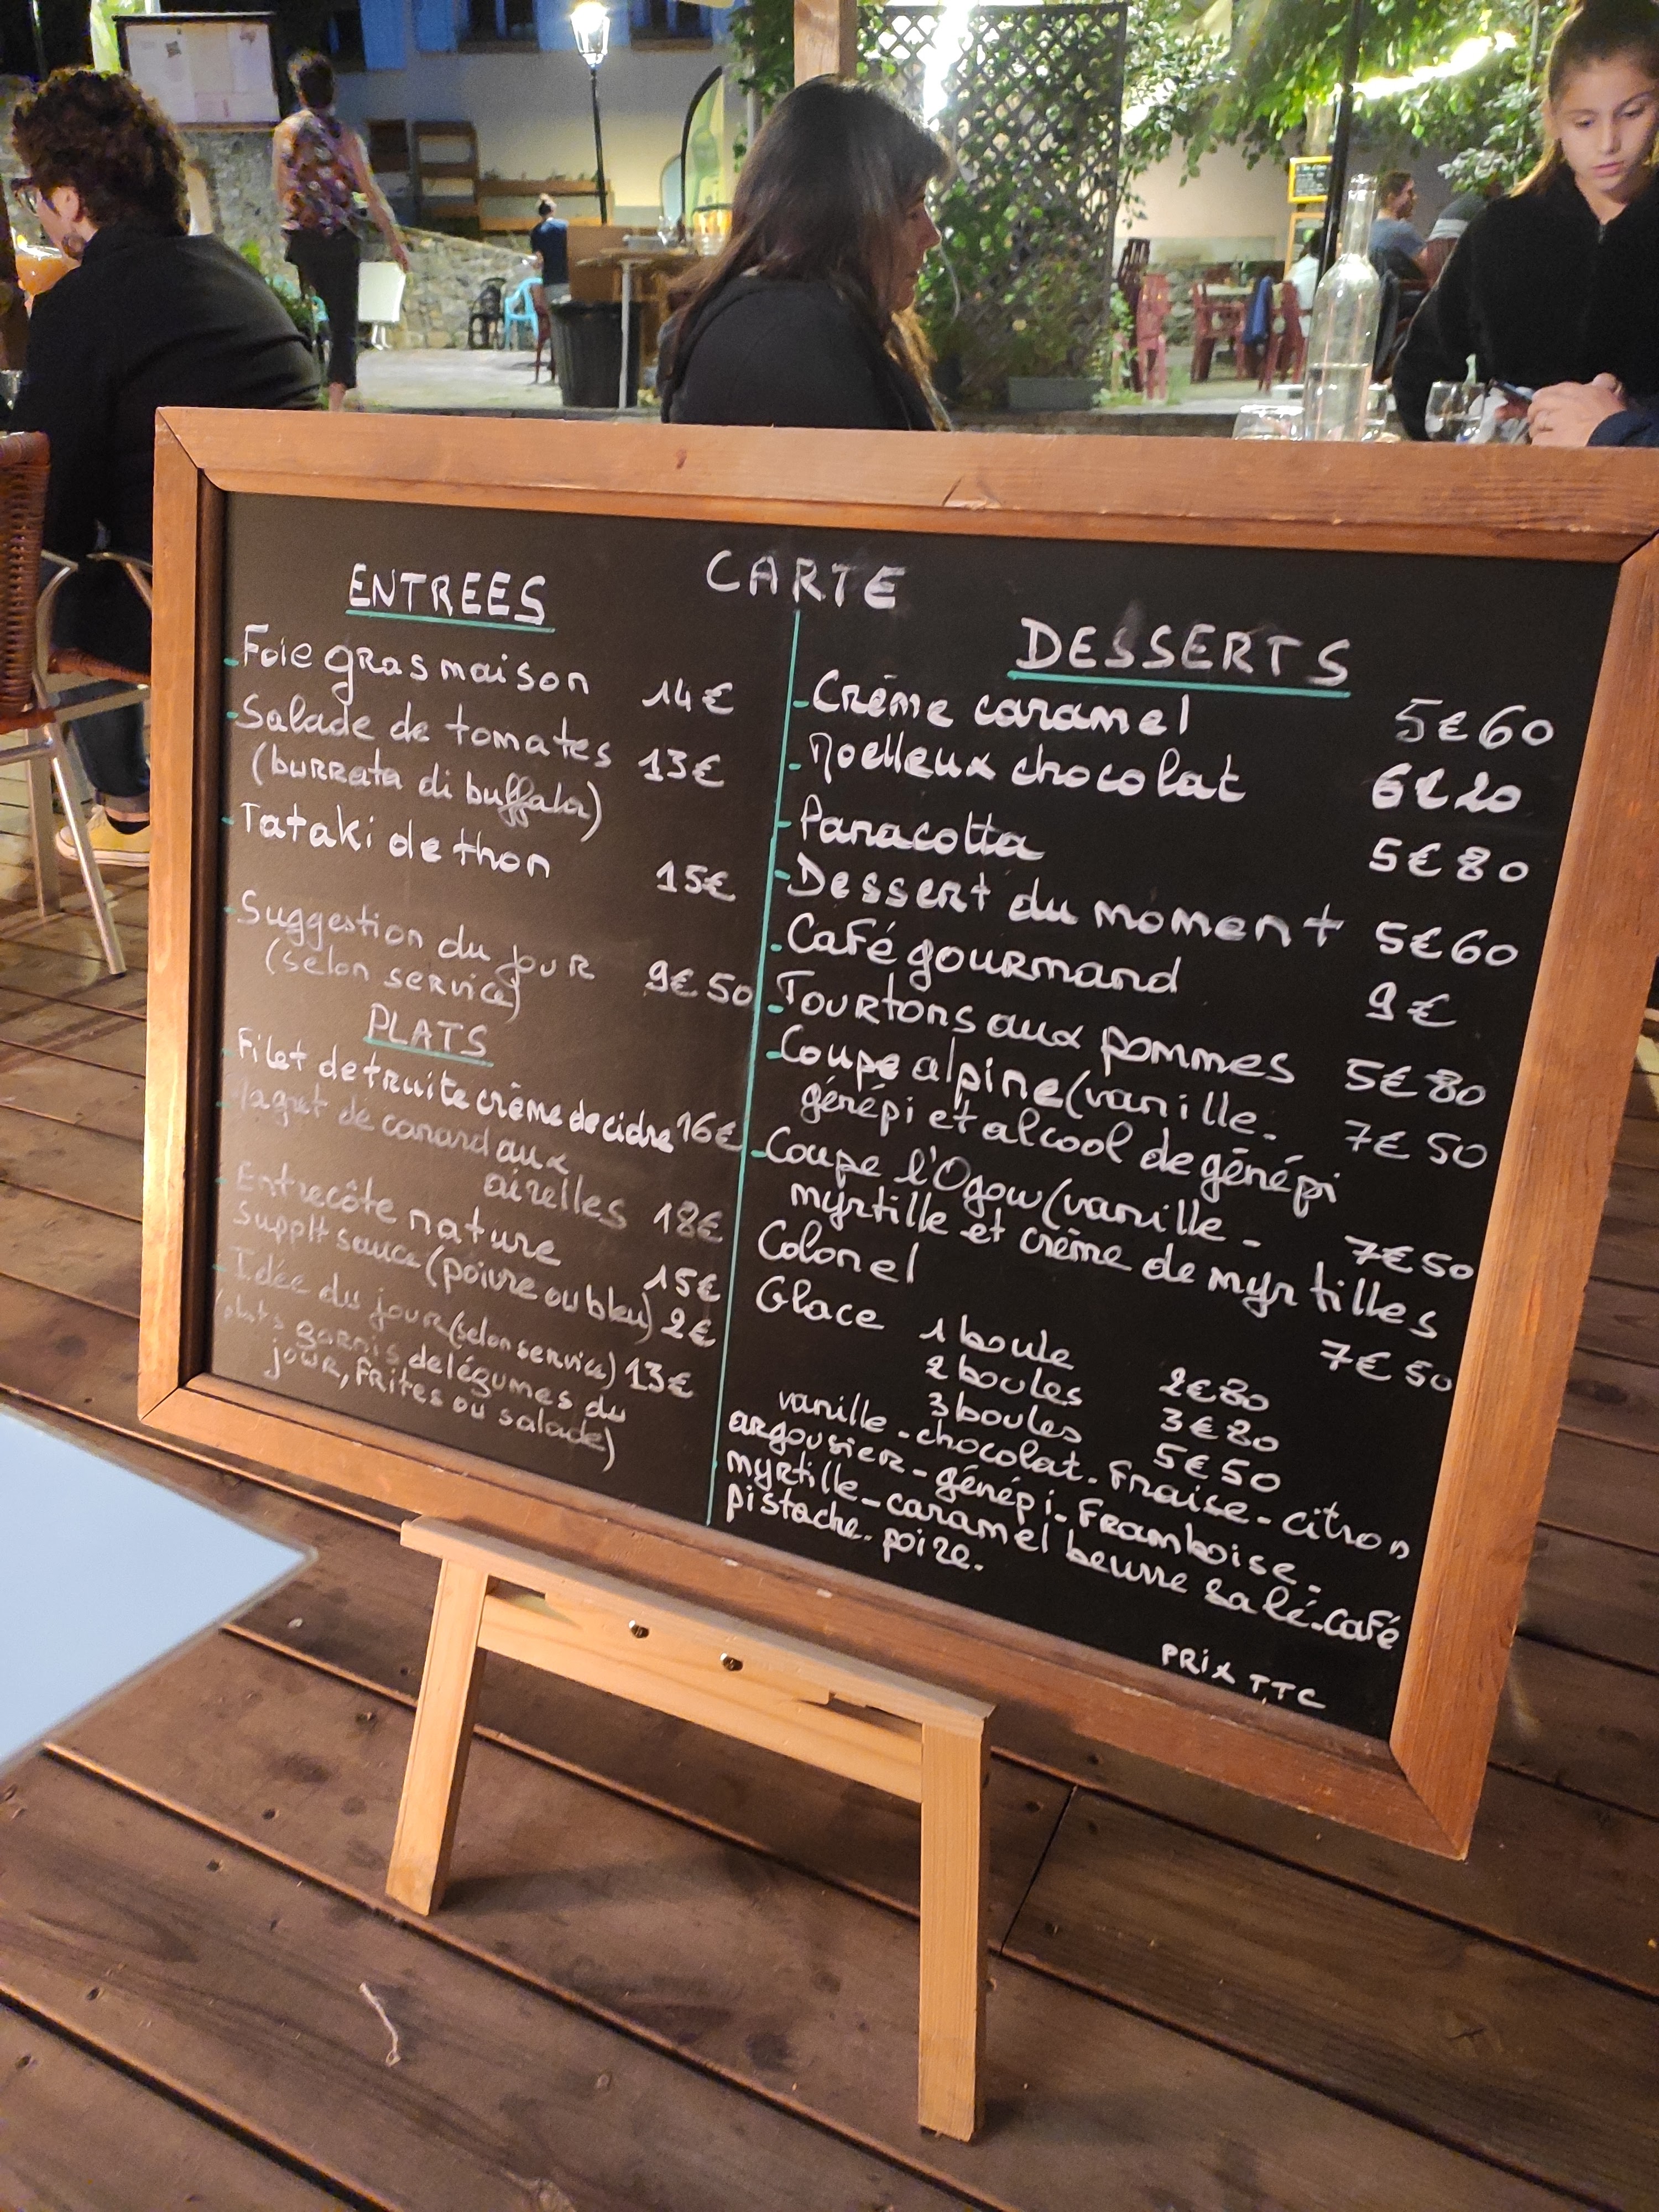 CARTE
ENTREES
-Foie gras maison 14€
-Salade de tomates 13€
(burrata di buffala)
-Tataki de thon 15€
-Suggestion du jour 9€50
(selon service)
PLATS
-Filet de truite crème de cidre 16€
-Magret de canard aux
airelles 18€
-Entrecôte nature 15€
Supplt sauce (poivre ou bleu) 2€
-Idée du jour (selon service) 13€
(plats garnis de légumes du
jour, frites ou salade)
DESSERTS
-Crème caramel 5€60
-Moelleux chocolat 6€20
-Panacotta 5€80
-Dessert du moment 5€60
-Café gourmand 9€
-Tourtons aux pommes 5€80
-Coupe alpine (vanille - 7€50
génépi et alcool de génépi
-Coupe l'Ogow (vanille - 7€50
myrtille et crème de myrtilles
Colonel 7€50
Glace 1 boule 2€80
2 boules 3€80
3 boules 5€50
vanille - chocolat - fraise - citron
argousier - génépi - Framboise -
myrtille - caramel beurre salé - café
pistache - poire.
PRIX T.T.C